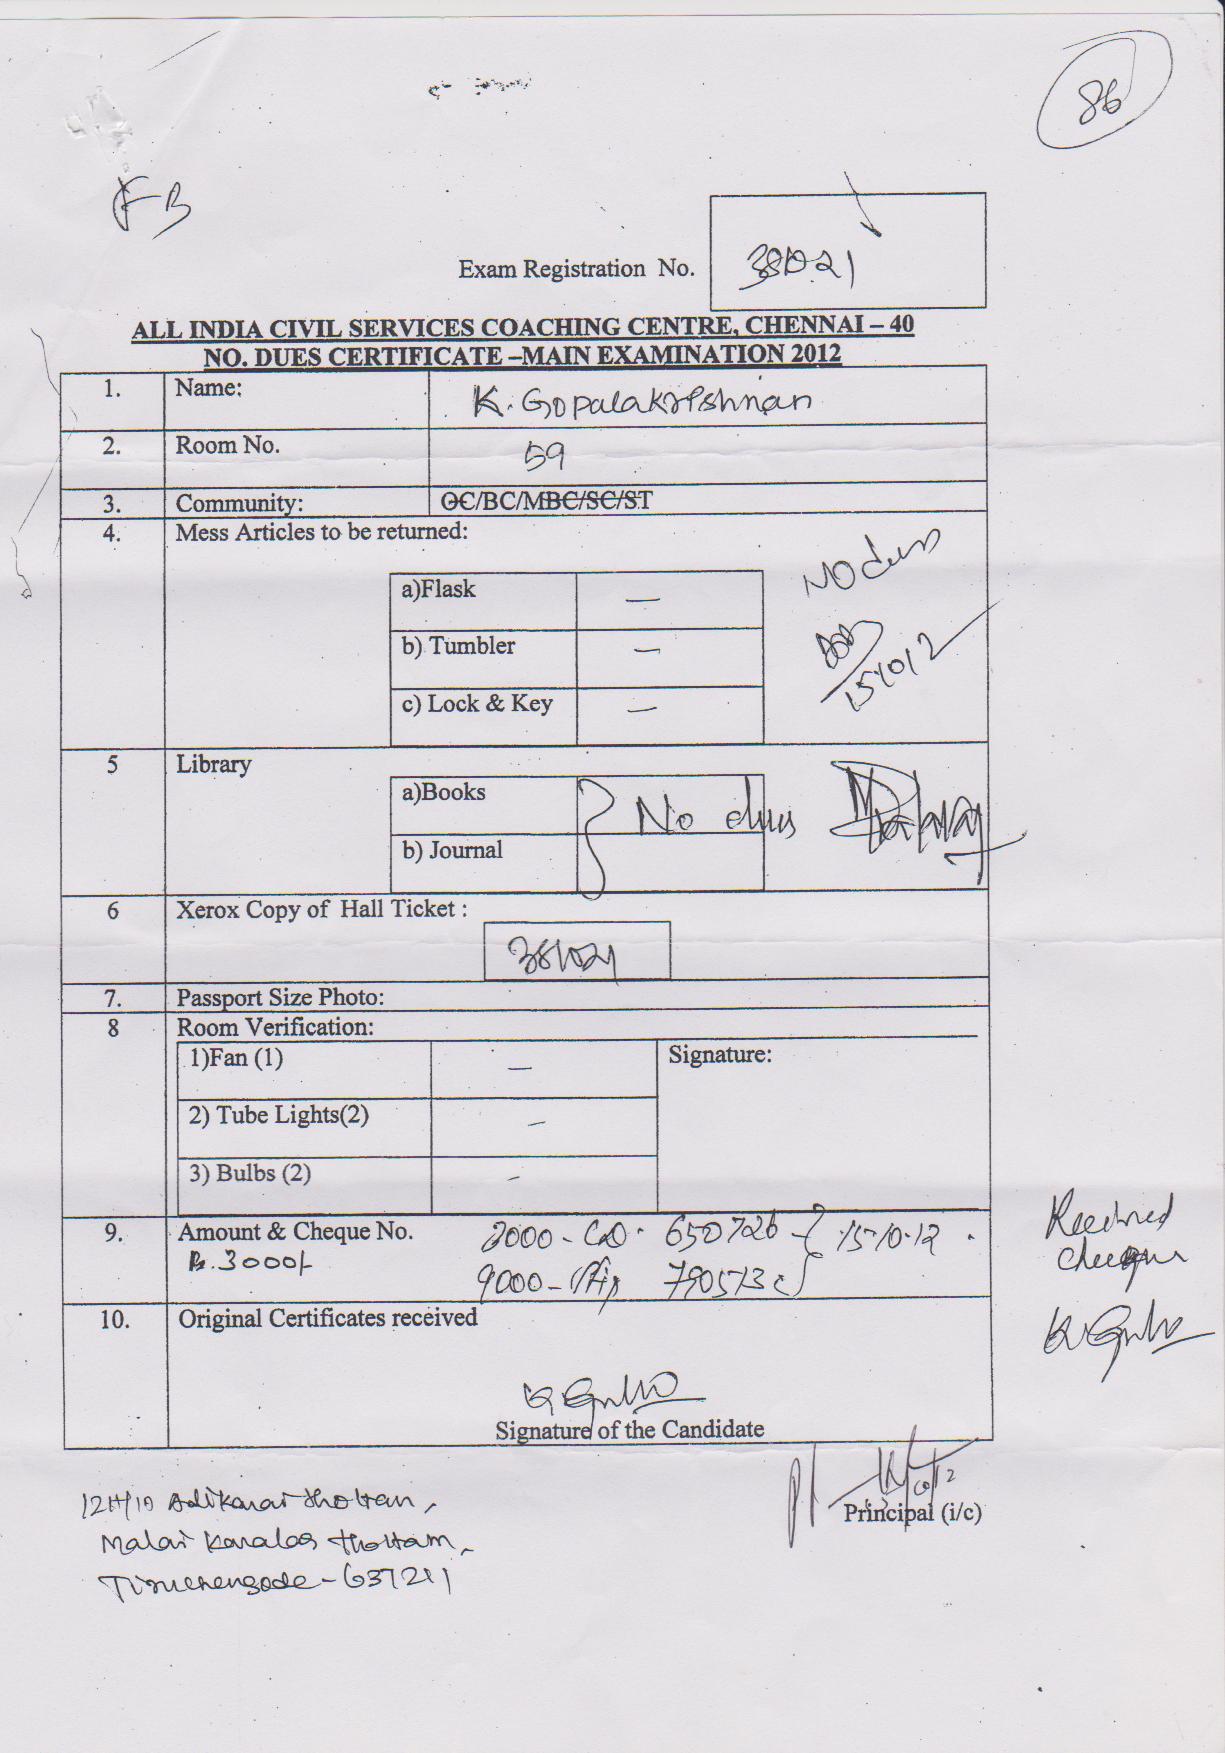 86
FB
Exam Registration No.
381021
ALL INDIA CIVIL SERVICES COACHING CENTRE, CHENNAI – 40
NO. DUES CERTIFICATE –MAIN EXAMINATION 2012
1. Name: K. Gopalakrishnan
2. Room No. 59
3. Community: OC/BC/MBC/SC/ST
4. Mess Articles to be returned:
a)Flask —
b) Tumbler —
c) Lock & Key —
NO dues
15/10/12
5 Library
a)Books
b) Journal
No dues
6 Xerox Copy of Hall Ticket :
381021
7. Passport Size Photo:
8 Room Verification:
1)Fan (1) —
2) Tube Lights(2) —
3) Bulbs (2) -
Signature:
9. Amount & Cheque No.
Rs.3000/-
3000 - 650726 - 15.10.12
9000 - 790573
Received
cheque
10. Original Certificates received
Signature of the Candidate
Principal (i/c)
Tiruchengode - 637211